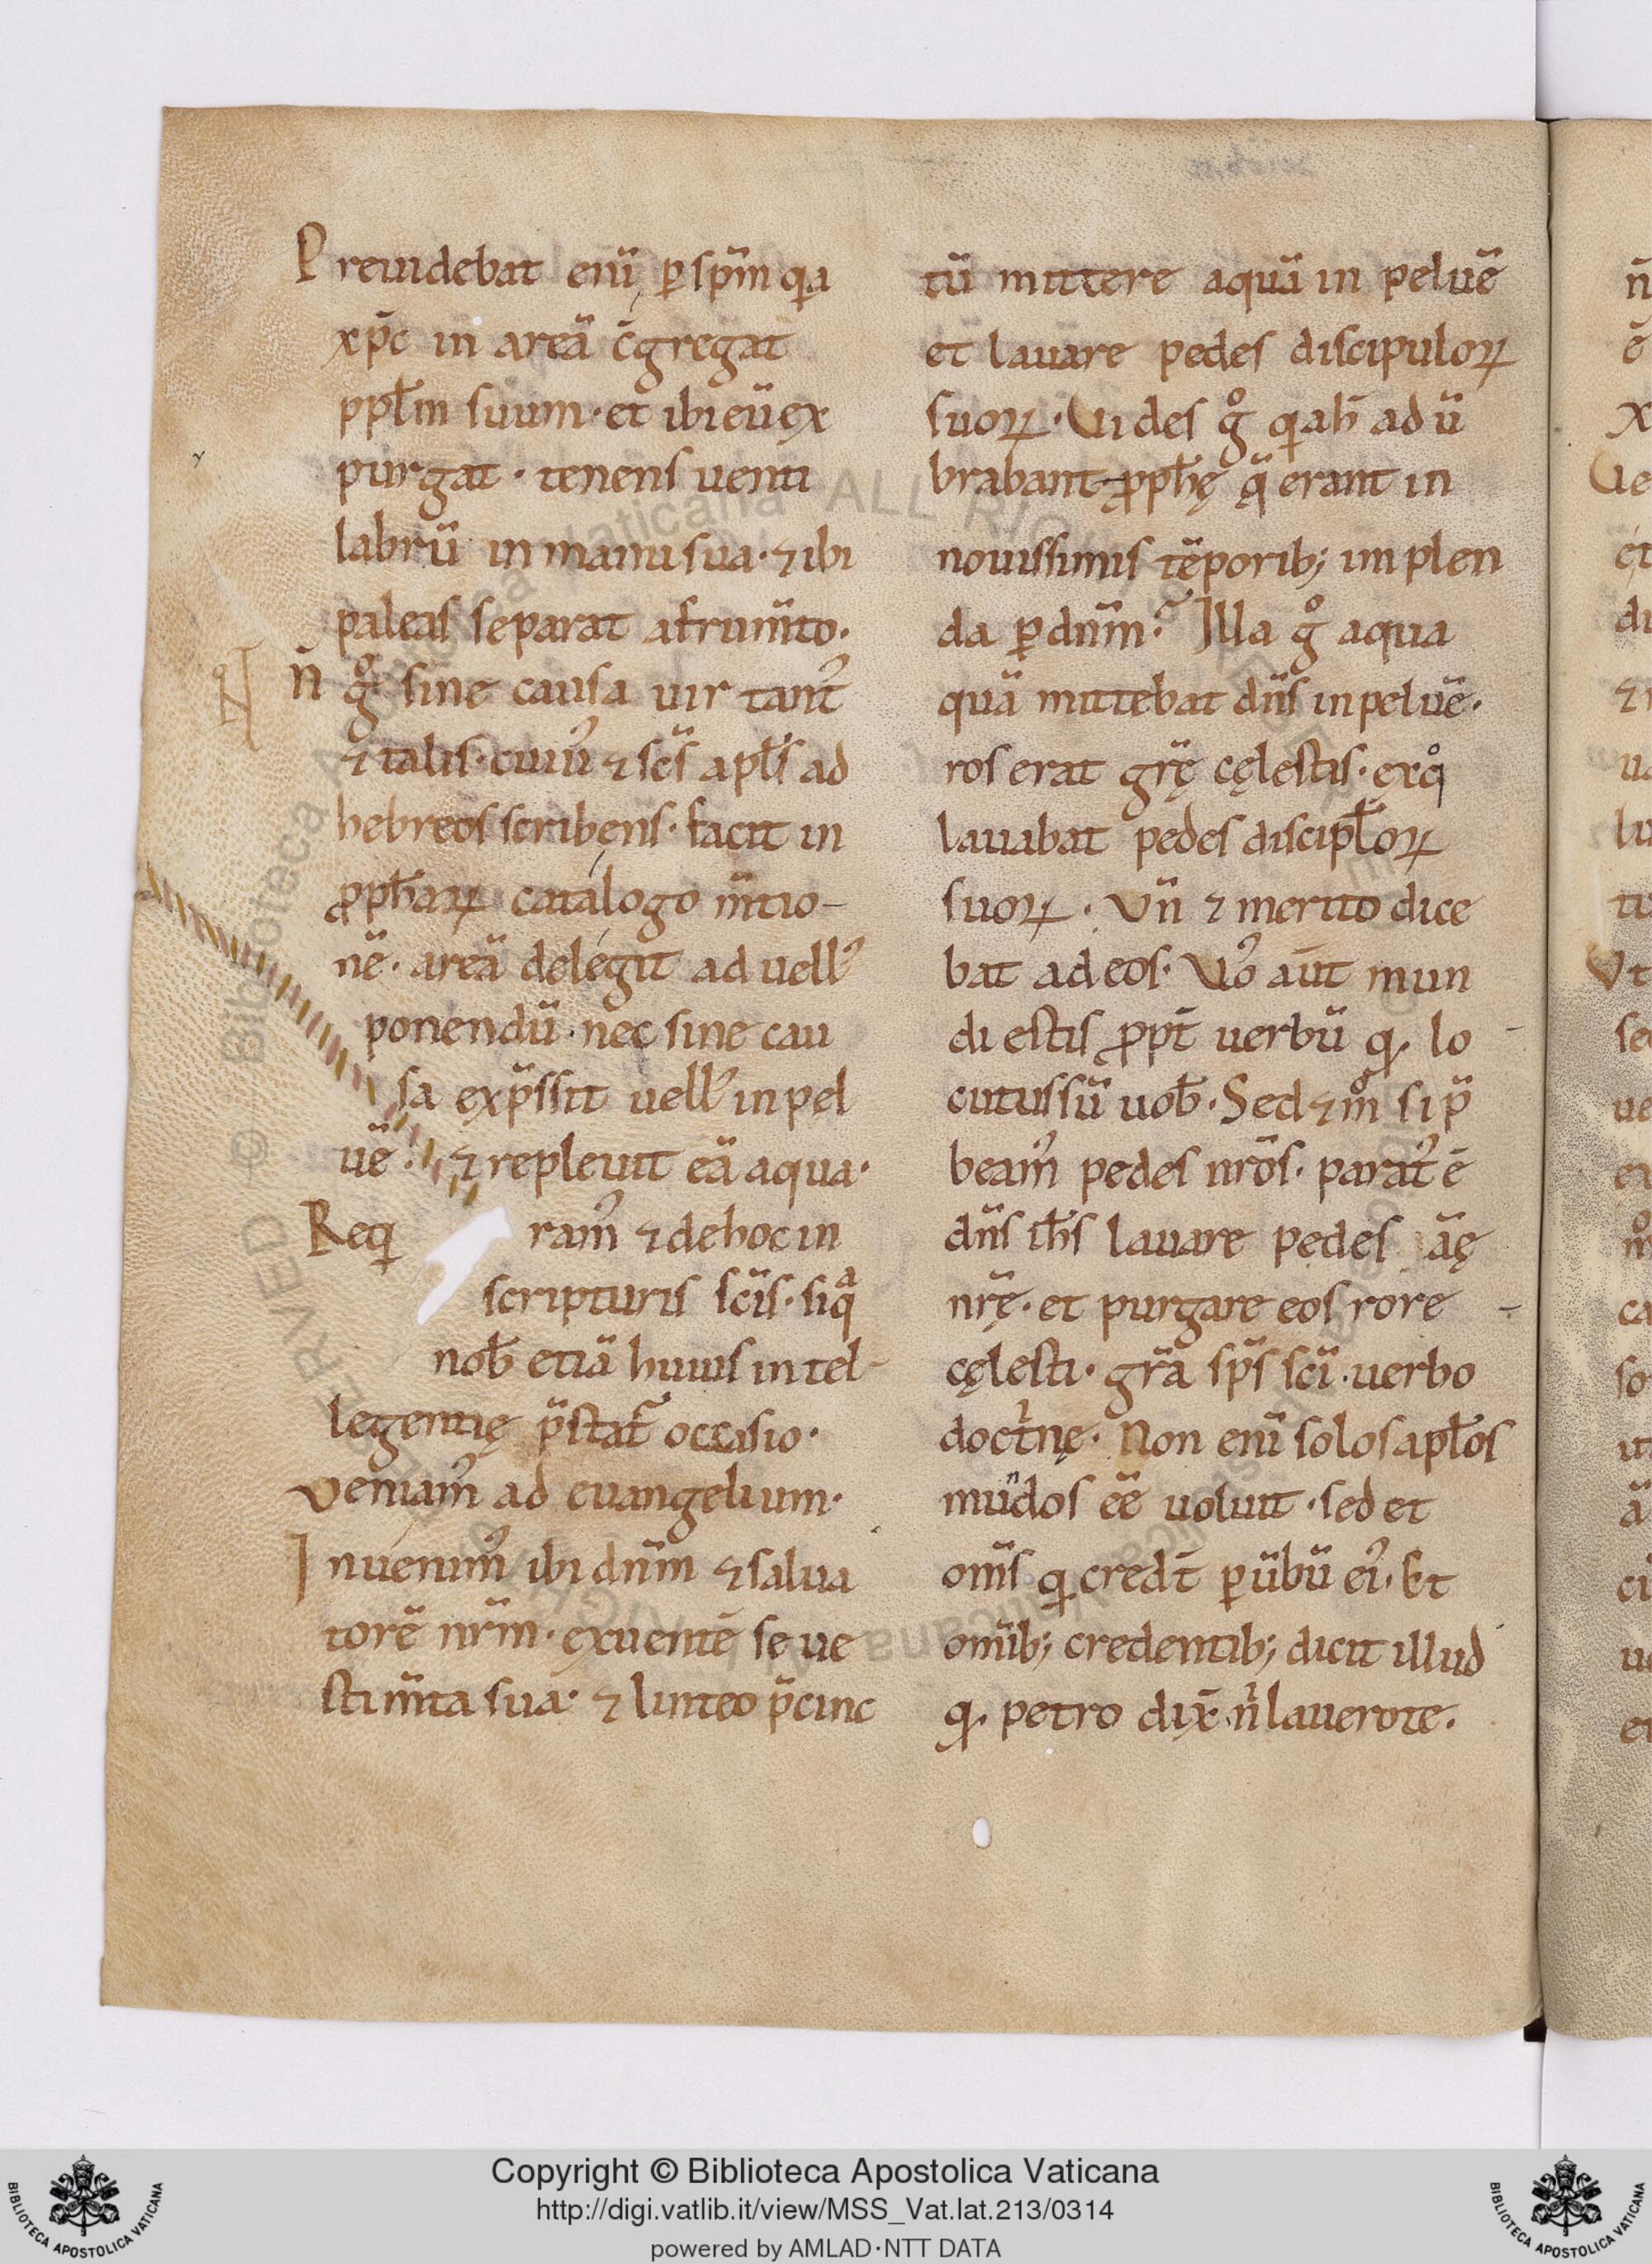 Preuidebat enī ꝑ sp̄m qa
xp̄c in areā c̄gregat
ppl̄m suum · et ibi eū ex
purgat · tenens uenti
labrū in manu sua · ⁊ ibi
paleas separat a frum̄to.
N̄ gͦ sine causa uir tant᾽
⁊ talis · cuiu᾽ ⁊ sc̄s apl̄s ad
hebreos scribens · facit in
ꝓph̄aꝝ catalogo m̄tio-
nē · areā delegit ad uell᾽
ponendū · nec sine cau
sa exp̄ssit uell᾽ in pel
uē · ⁊ repleuit eā aqua ·
Req ram᾽ ⁊ de hoc in
scripturis sc̄is · siqͣ
nob̄ etiā huius intel-
legentię p̄stat᾽ occasio ·
Veniam᾽ ad euangelium ·
Inuenim᾽ ibi dn̄m ⁊ salua
torē nr̄m · exuentē se ue
stim̄ta sua · ⁊ linteo p̄cinc
tū mittere aquā in peluē
et lauare pedes discipuloꝝ
suoꝝ · Uides gͦ q ah̄ adū
brabant ꝓph̄ę q̄ erant in
nouissimis tēporib; implen
da ꝑ dn̄m · Illa gͦ aqua
quā mittebat dn̄s in peluē ·
ros erat gr̄ę cęlestis · ex qͦ
lauabat pedes discipl̄oꝝ
suoꝝ · Vn̄ ⁊ merito dice
bat ad eos · Vo᾽ aut̄ mun
di estis ꝓpt̄ uerbū q · lo
cutus sū uob̄ · Sed ⁊ mͦ si p̄
beam᾽ pedes nr̄os · parat᾽ ē
dn̄s ih̄s lauare pedes āę
nr̄ę · et purgare eos rore
cęlesti · gr̄a sp̄s sc̄i · uerbo
doctⁱnę · Non enī solos apl̄os
mūdos ēē uoluit · sed et
om̄s q credt̄ ꝑ ūbū ei᾽ · Et
om̄ib; credentib; dicit illud
q · petro dix̄ nⁱ lauero te.
Copyright © Biblioteca Apostolica Vaticana
http://digi.vatlib.it/view/MSS_Vat.lat.213/0314
powered by AMLAD·NTT DATA
BIBLIOTECA APOSTOLICA VATICANA
BIBLIOTECA APOSTOLICA VATICANA